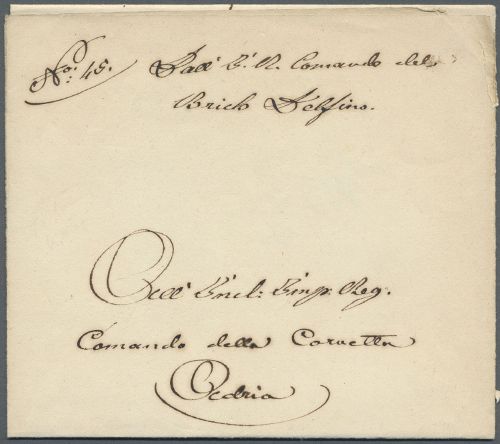 No: 45. Dall' I. R. Comando del
Brick Delfino.
All' Incl: Imp. Reg.
Comando della Corvetta
Adria